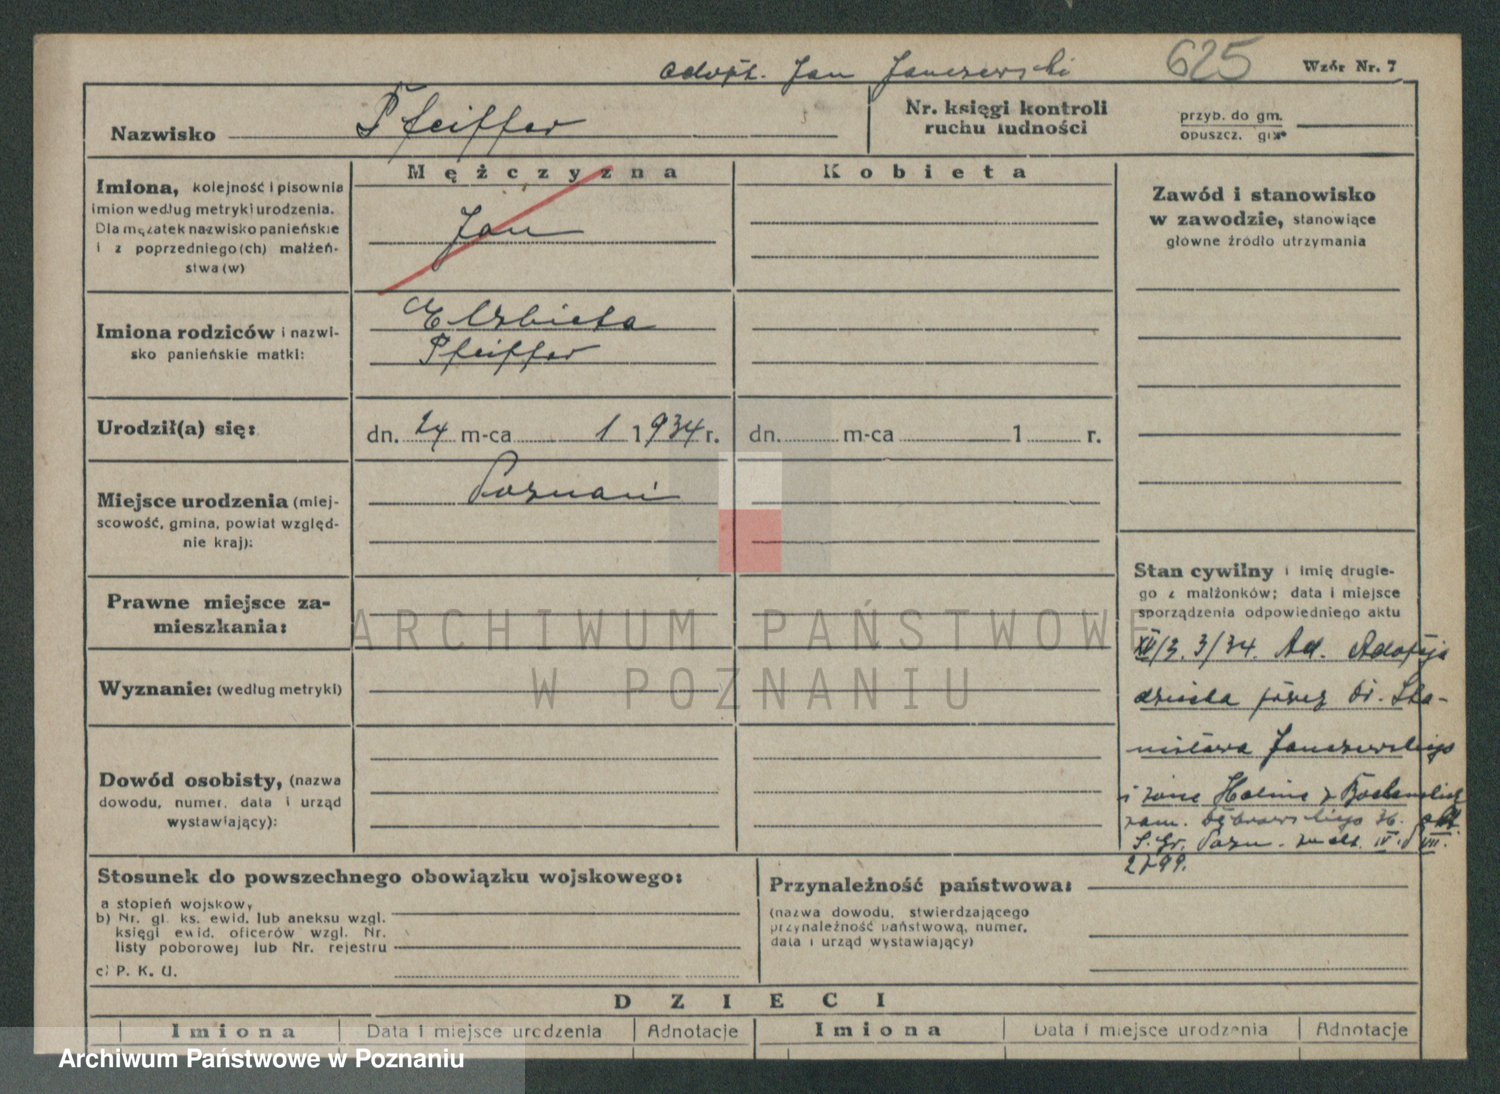 adopt. Jan Janczewski
625
Wzór Nr. 7
Nazwisko Pfeiffer
Nr. księgi kontroli
ruchu ludności
przyb. do gm.
opuszcz. gm.
Mężczyzna
Kobieta
Imiona, kolejność i pisownia
imion według metryki urodzenia.
Dla mężatek nazwisko panieńskie
i z poprzedniego(ch) małżeń-
stwa(w)
Jan
Zawód i stanowisko
w zawodzie, stanowiące
główne źródło utrzymania
Imiona rodziców i nazwi-
sko panieńskie matki:
Elżbieta
Pfeiffer
Urodził(a) się:
dn. 24 m-ca 1 1934 r.
dn. m-ca 1 r.
Miejsce urodzenia (miej-
scowość, gmina, powiat względ-
nie kraj):
Poznań
Prawne miejsce za-
mieszkania:
Wyznanie: (według metryki)
Dowód osobisty, (nazwa
dowodu, numer, data i urząd
wystawiający):
Stan cywilny i imię drugie-
go z małżonków; data i miejsce
sporządzenia odpowiedniego aktu
XII/3. 3/34. Ad. Adopcja
dziecka przez Dr. Sta-
nisława Janczewskiego
i żonę Halinę z
zam. Dąbrowskiego 36.
S. Gr. Pozn. IV. VII.
2799.
Stosunek do powszechnego obowiązku wojskowego:
a stopień wojskowy
b) Nr. gl. ks. ewid. lub aneksu wzgl.
księgi ewid. oficerów wzgl. Nr.
listy poborowej lub Nr. rejestru
c) P. K. U.
Przynależność państwowa:
(nazwa dowodu, stwierdzającego
przynależność państwową, numer,
data i urząd wystawiający)
DZIECI
Imiona
Data i miejsce urodzenia
Adnotacje
Imiona
Data i miejsce urodzenia
Adnotacje
ARCHIWUM PAŃSTWOWE
W POZNANIU
Archiwum Państwowe w Poznaniu